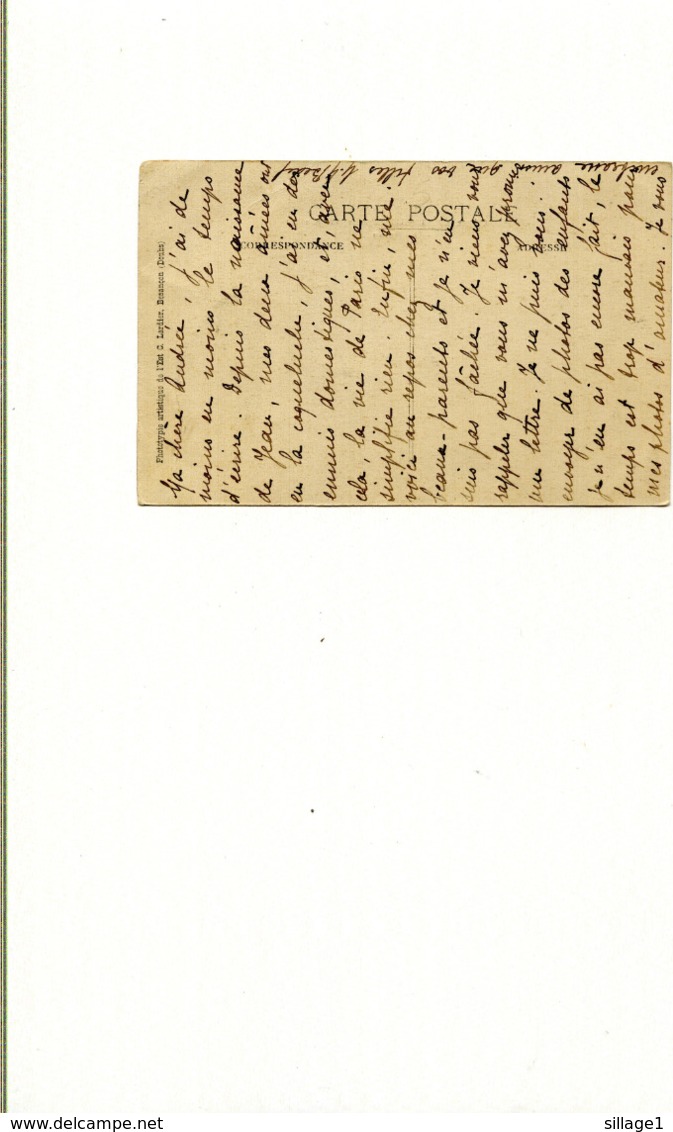 CARTE POSTALE
CORRESPONDANCE
ADRESSE
Phototypie artistique de l'Est C. Lardier, Besançon (Doubs)
Ma chère Andrée, j'ai de
moins en moins le temps
d'écrire. Depuis la naissance
de Jean, mes deux aînées ont
eu la coqueluche, j'ai eu des
ennuis domestiques, et, avec
cela, la vie de Paris ne
simplifie rien. Enfin, me
voici au repos chez mes
beaux-parents et je n'en
suis pas fâchée. Je viens vous
rappeler que vous m'avez promis
une lettre. Je ne puis vous
envoyer de photos des enfants
je n'en ai pas encore fait, le
temps est trop mauvais pour
mes photos d'amateur. Je vous
embrasse ainsi que vos filles
delcampe.net
sillage1